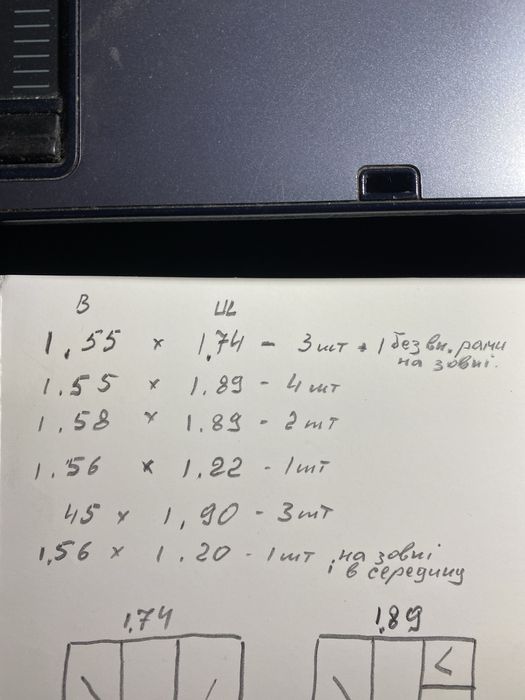 В Ш
1,55 x 1,74 - 3шт + 1 без вн. рами
на зовні.
1.55 x 1.89 - 4шт
1.58 x 1.89 - 2шт
1.56 x 1.22 - 1шт
45 x 1,90 - 3шт
1,56 x 1.20 - 1шт на зовні
і в середину
1,74 1,89